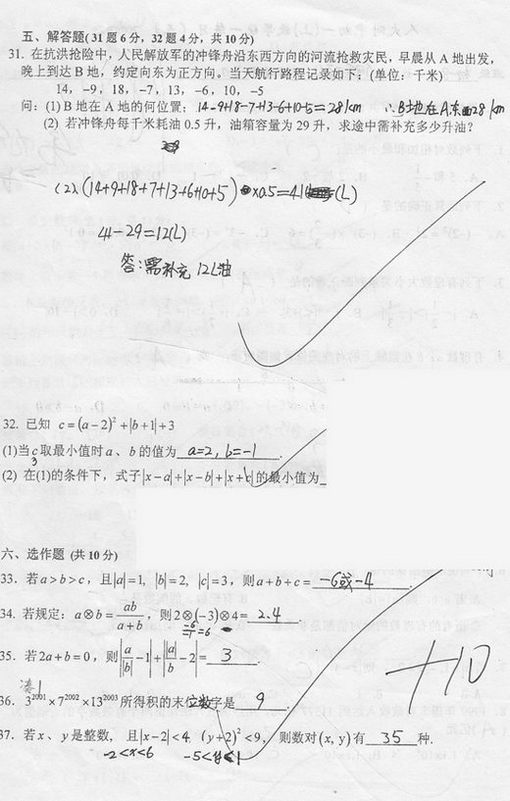 五、解答题(31题6分，32题4分，共10分)
31. 在抗洪抢险中，人民解放军的冲锋舟沿东西方向的河流抢救灾民，早晨从A地出发，
晚上到达B地，约定向东为正方向。当天航行路程记录如下：(单位：千米)
14，-9，18，-7，13，-6，10，-5
问：(1) B地在A地的何位置； 14-9+18-7+13-6+10-5=28km ∴B地在A东28km
(2) 若冲锋舟每千米耗油0.5升，油箱容量为29升，求途中需补充多少升油？
(2) (14+9+18+7+13+6+10+5)×0.5=41(L)
41-29=12(L)
答：需补充12L油
32. 已知 c=(a-2)²+|b+1|+3
(1)当c取最小值时a、b的值为 a=2, b=-1 .
3
(2) 在(1)的条件下，式子|x-a|+|x-b|+|x+c|的最小值为_
六、选作题 (共10分)
33. 若a>b>c，且|a|=1, |b|=2, |c|=3，则a+b+c= -6或-4 .
34. 若规定：a⊗b=ab/(a+b)，则2⊗(-3)⊗4= 2.4
-6/-1=6
35. 若2a+b=0，则|a/|b|-1|+||a|/b-2|= 3 .
36. 3²⁰⁰¹×7²⁰⁰²×13²⁰⁰³所得积的末位数字是 9 .
37. 若x、y是整数，且|x-2|<4, (y+2)²<9，则数对(x, y)有 35 种.
-2<x<6 -5<y<1
+10